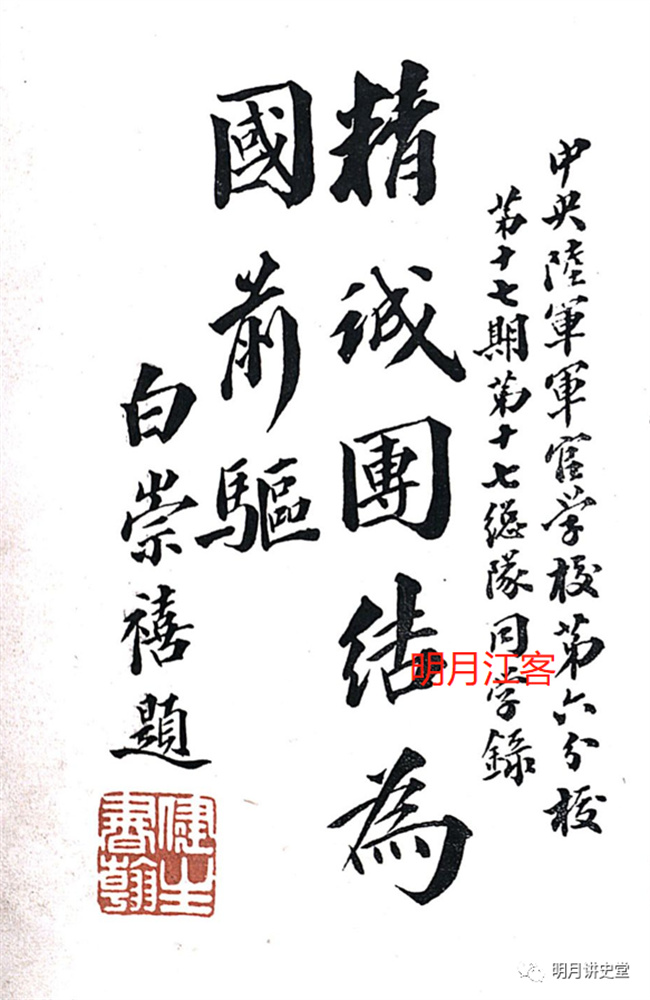 中央陸軍軍官学校第六分校
第十七期第十七總隊同学錄
精誠團結為
國前驅
白崇禧題
健生
書翰
明月江客
明月讲史堂